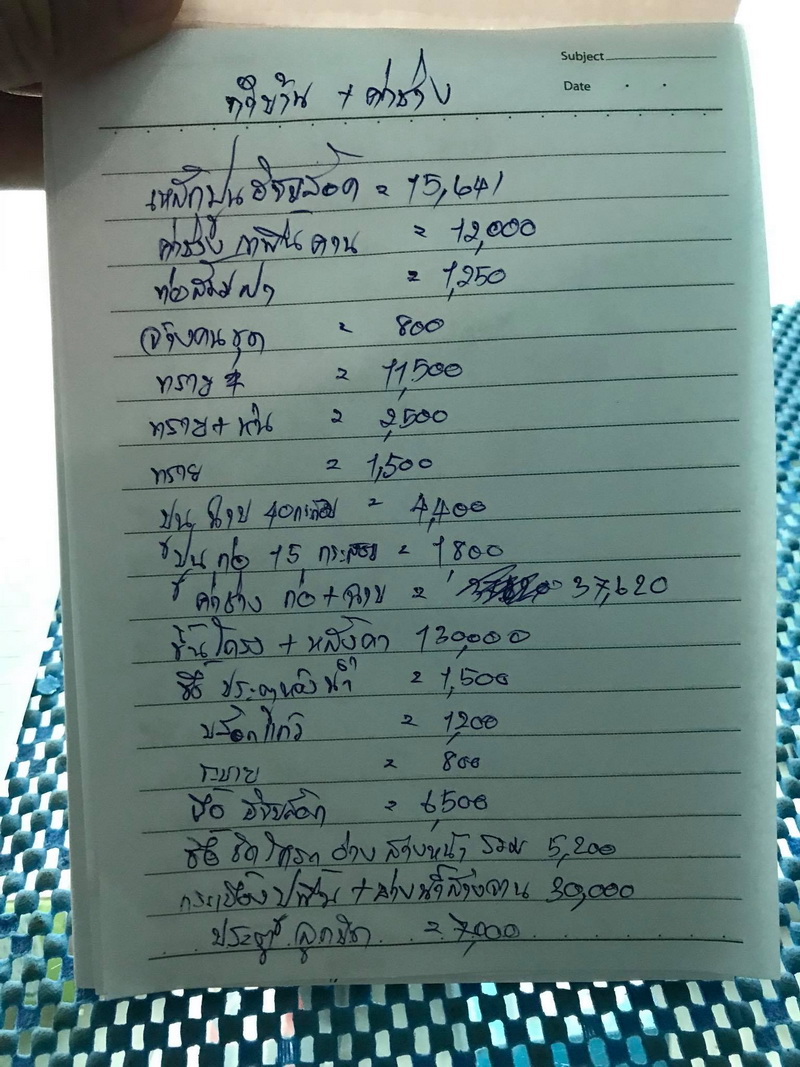 Subject
Date
ทำบ้าน + ค่าช่าง
เหล็กปูนอิฐบล๊อค = 15,641
ค่าช่าง เทพื้น คาน = 12,000
ท่อส้วม ฝา = 1,250
จ้างคนขุด = 800
ทราย = 11,500
ทราย + หิน = 2,500
ทราย = 1,500
ปูน ฉาบ 40 กระสอบ = 4,400
ปูน ก่อ 15 กระสอบ = 1,800
ค่าช่าง ก่อ + ฉาบ = 37,620
ขึ้นโครง + หลังคา 130,000
ซื้อ ประตูห้องน้ำ = 1,500
บล๊อกแก้ว = 1,200
ระบาย = 800
ซื้อ อิฐบล๊อก = 6,500
ซื้อ ชักโครก อ่าง ล้างหน้า รวม 5,200
กระเบื้องปูพื้น + อ่างน้ำล้างจาน 30,000
ประตู ลูกบิด = 7,000